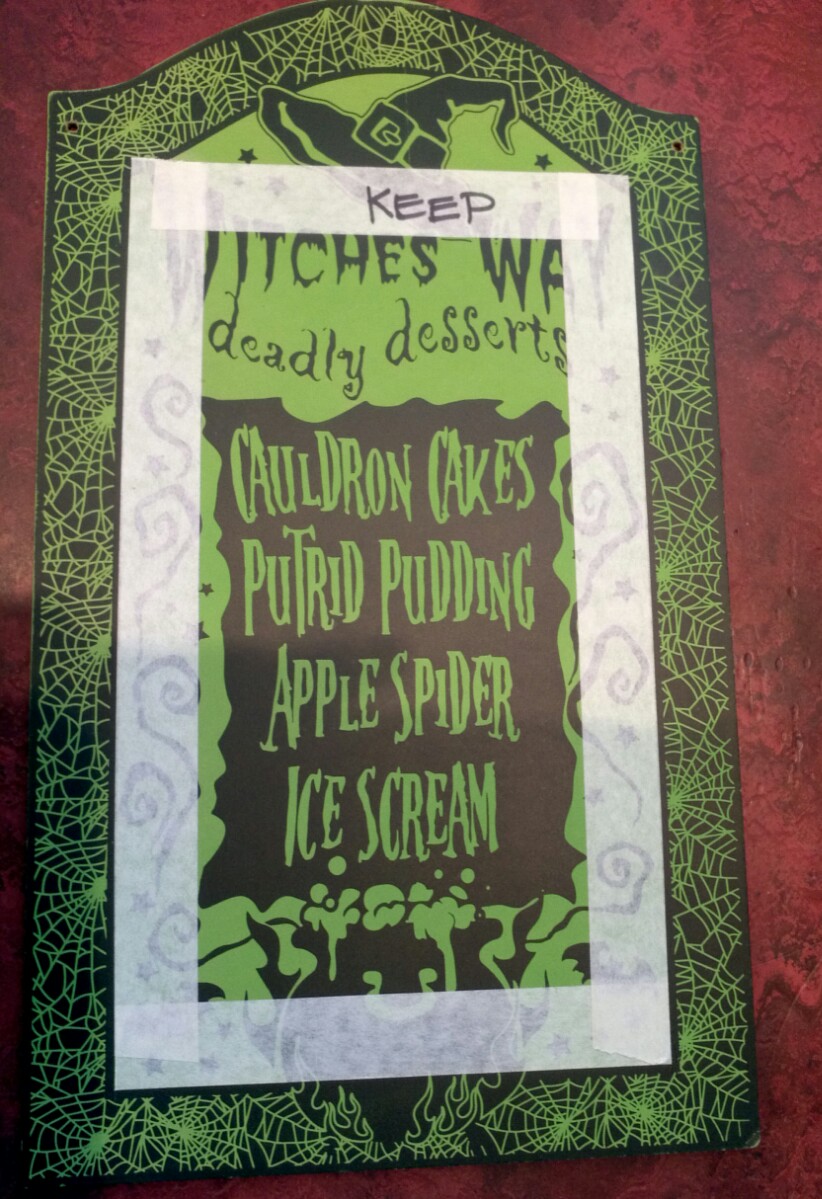 KEEP
WITCHES WAY
deadly desserts
CAULDRON CAKES
PUTRID PUDDING
APPLE SPIDER
ICE SCREAM